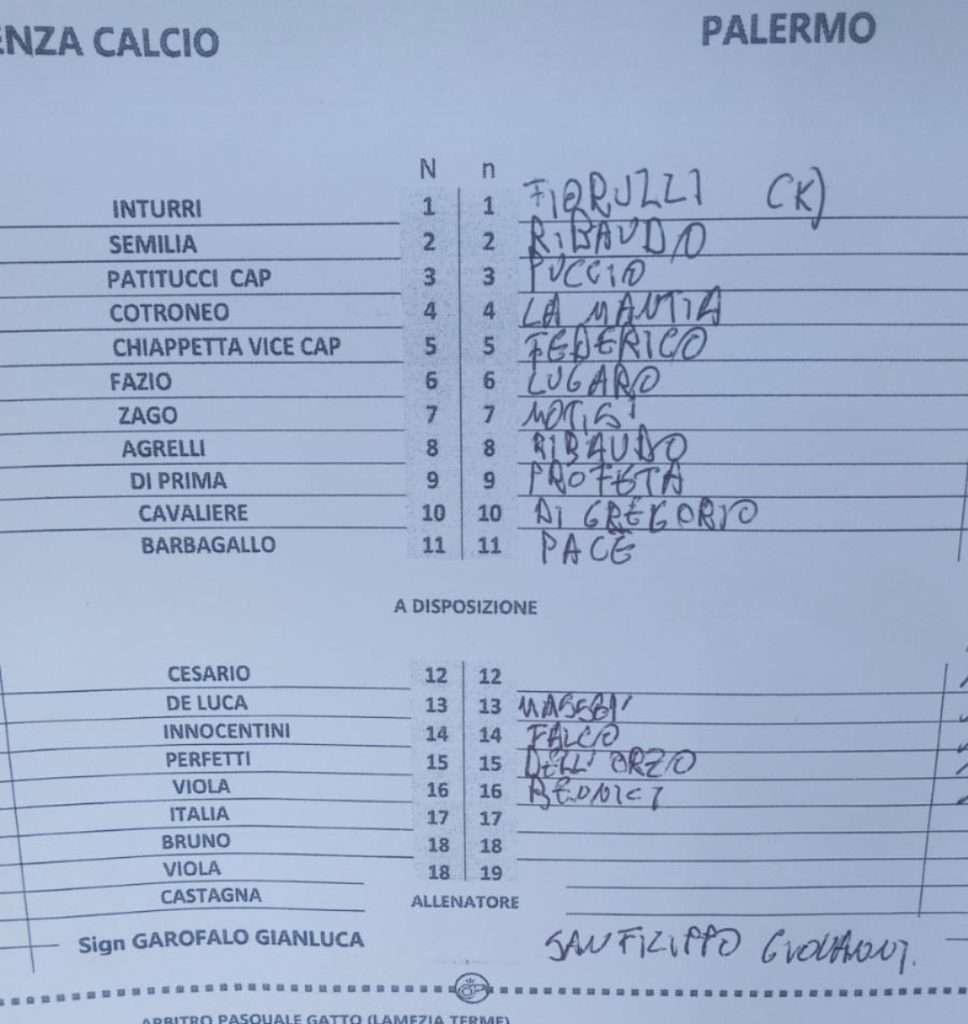 ENZA CALCIO PALERMO
N n
INTURRI 1 1 FIORUZZI (K)
SEMILIA 2 2 RIBAUDO
PATITUCCI CAP 3 3 PUCCIO
COTRONEO 4 4 LA MANTIA
CHIAPPETTA VICE CAP 5 5 FEDERICO
FAZIO 6 6 LUGARO
ZAGO 7 7 MOTISI
AGRELLI 8 8 RIBAUDO
DI PRIMA 9 9 PROFETA
CAVALIERE 10 10 DI GREGORIO
BARBAGALLO 11 11 PACE
A DISPOSIZIONE
CESARIO 12 12
DE LUCA 13 13
INNOCENTINI 14 14 FALCO
PERFETTI 15 15 DELL' ORZO
VIOLA 16 16
ITALIA 17 17
BRUNO 18 18
VIOLA 18 19
CASTAGNA ALLENATORE
Sign GAROFALO GIANLUCA SANFILIPPO GIOVANNI.
ARBITRO PASQUALE GATTO (LAMEZIA TERME)